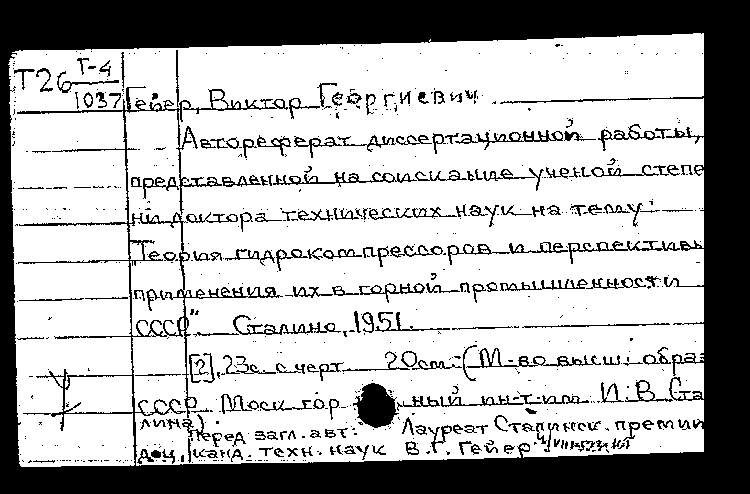 Т26 Т-4
1037
Гейер, Виктор Георгиевич
Автореферат диссертационной работы,
представленной на соискание ученой степе
ни доктора технических наук на тему:
"Теория гидрокомпрессоров и перспективы
применения их в горной промышленности
СССР". Сталино, 1951.
[2], 23с. с черт. 20см. (М-во высш. образ
СССР. Моск гор ный ин-т им И.В. Ста
лина).
Перед загл. авт: Лауреат Сталинск. премии
доц., канд. техн. наук В.Г. Гейер